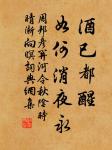 酒已都醒
如何消夜永
周邦彥關河令秋陰時
晴漸向暝詞典網集